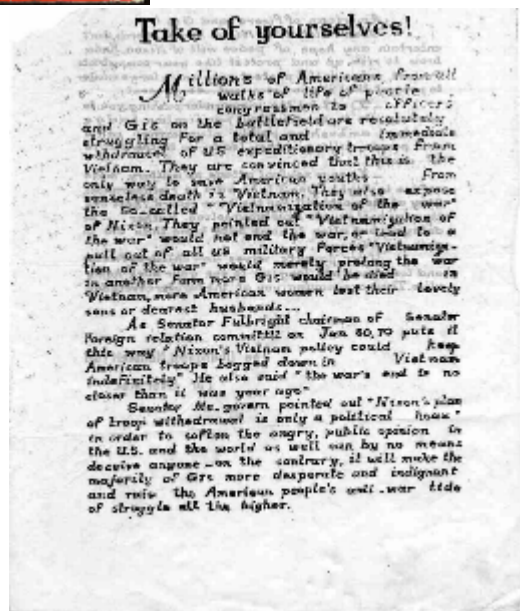 Take of yourselves!
Millions of Americans from all
walks of life of
congressmen to officers
and GIs on the battlefield are resolutely
struggling for a total and immediate
withdrawal of US expeditionary troops from
Vietnam. They are convinced that this is the
only way to save American youths from
senseless death in Vietnam. They also expose
the So-called "Vietnamization of the war"
of Nixon. They pointed out "Vietnamization of
the war" would not end the war, or lead to a
pull out of all US military forces "Vietnamiza-
tion of the war" would merely prolong the war
in another form more GIs would be died in
Vietnam, more American women lost their lovely
sons or dearest husbands...
As Senator Fulbright chairman of Senator
foreign relation on Jan 30, 70 puts it
this way "Nixon's Vietnam policy could keep
American troops bogged down in Vietnam
indefinitely" He also said "the war's end is no
closer than it was year ago"
Senator Mc. govern pointed out "Nixon's plan
of troop withdrawal is only a political hoax"
in order to soften the angry, public opinion in
the U.S. and the world as well can by no means
deceive anyone - on the contrary, it will make the
majority of GIs more desperate and indignant
and raise the American people's anti-war tide
of struggle all the higher.